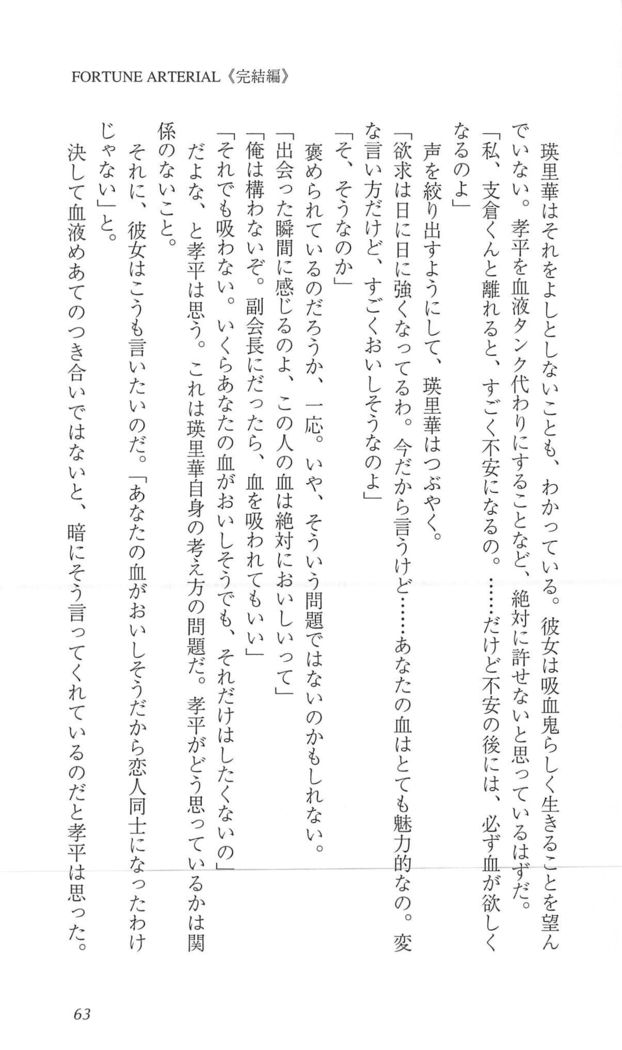 FORTUNE ARTERIAL《完結編》
瑛里華はそれをよしとしないことも、わかっている。彼女は吸血鬼らしく生きることを望ん
でいない。孝平を血液タンク代わりにすることなど、絶対に許せないと思っているはずだ。
「私、支倉くんと離れると、すごく不安になるの。……だけど不安の後には、必ず血が欲しく
なるのよ」
声を絞り出すようにして、瑛里華はつぶやく。
「欲求は日に日に強くなってるわ。今だから言うけど……あなたの血はとても魅力的なの。変
な言い方だけど、すごくおいしそうなのよ」
「そ、そうなのか」
褒められているのだろうか、一応。いや、そういう問題ではないのかもしれない。
「出会った瞬間に感じるのよ、この人の血は絶対においしいって」
「俺は構わないぞ。副会長にだったら、血を吸われてもいい」
「それでも吸わない。いくらあなたの血がおいしそうでも、それだけはしたくないの」
だよな、と孝平は思う。これは瑛里華自身の考え方の問題だ。孝平がどう思っているかは関
係のないこと。
それに、彼女はこうも言いたいのだ。「あなたの血がおいしそうだから恋人同士になったわけ
じゃない」と。
決して血液めあてのつき合いではないと、暗にそう言ってくれているのだと孝平は思った。
63